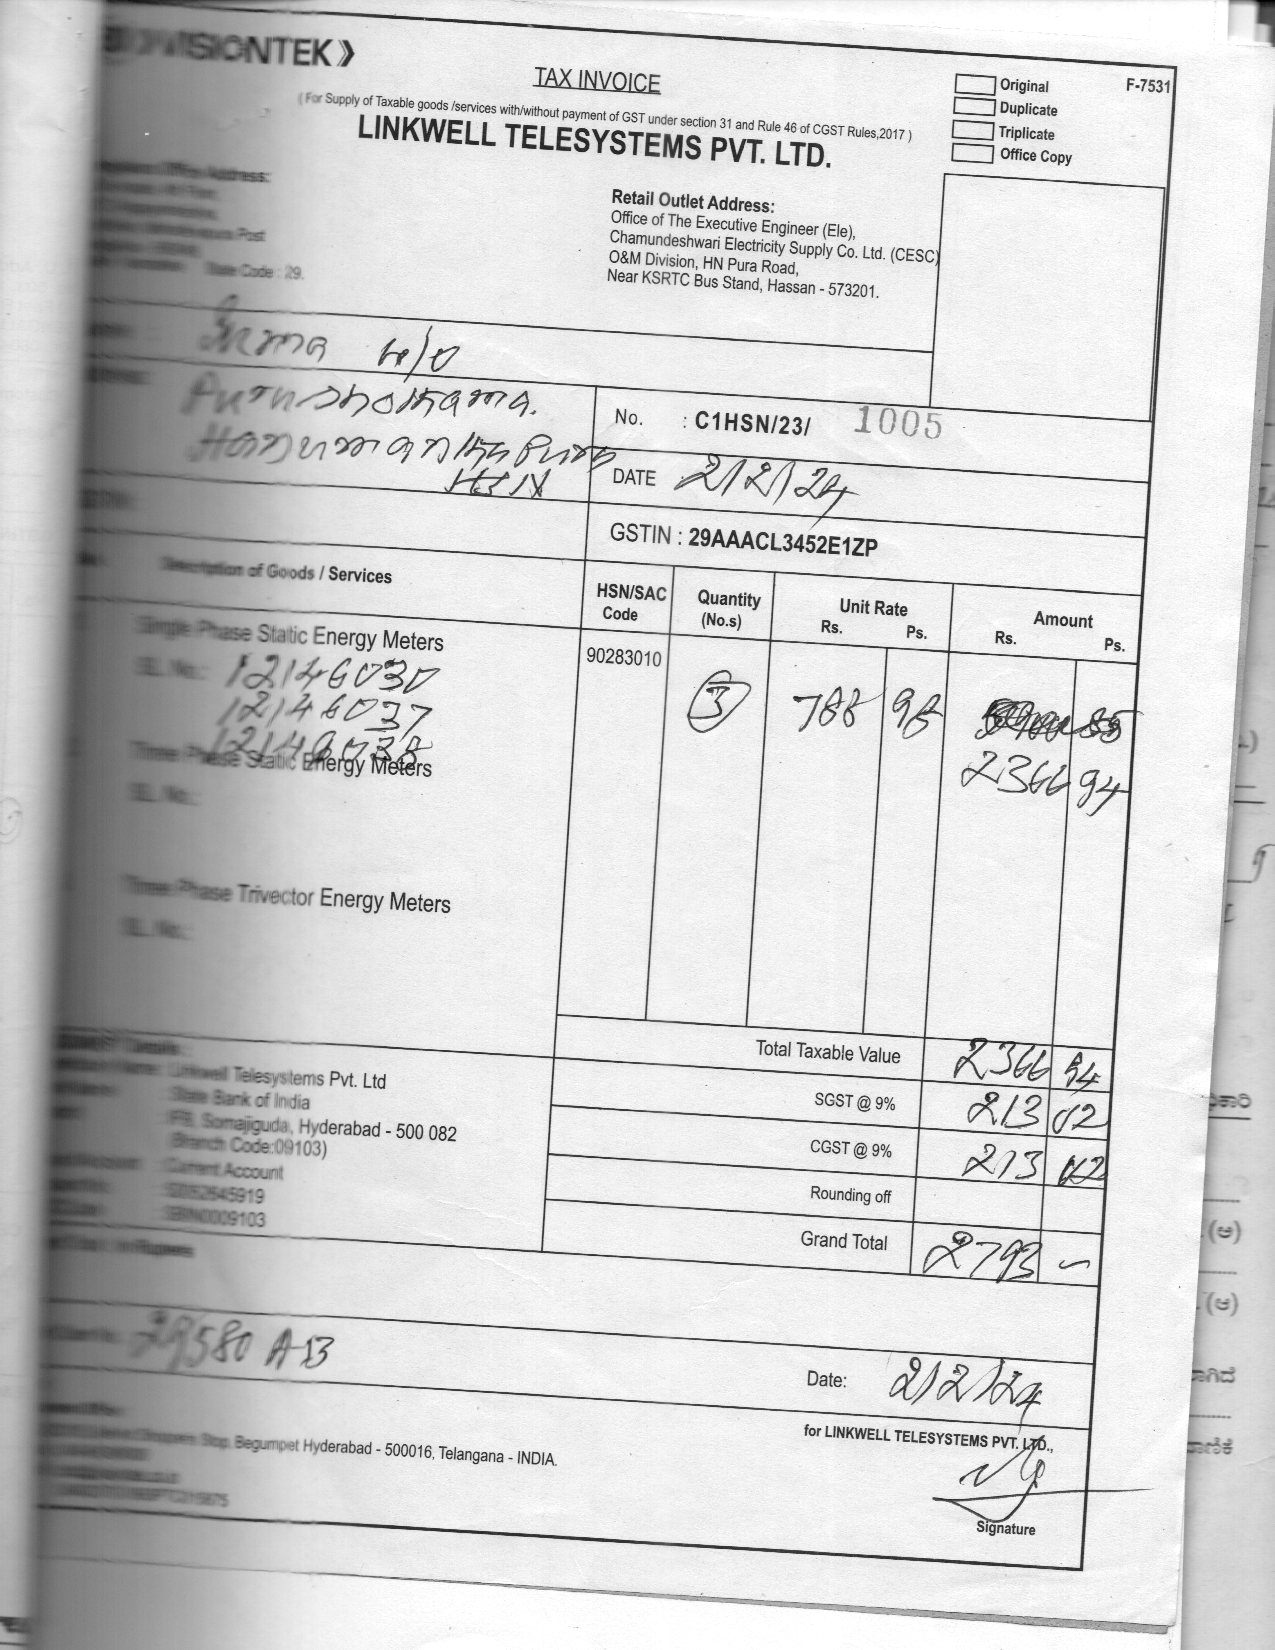 VISIONTEK
TAX INVOICE
Original
F-7531
Duplicate
Triplicate
Office Copy
( For Supply of Taxable goods /services with/without payment of GST under section 31 and Rule 46 of CGST Rules,2017 )
LINKWELL TELESYSTEMS PVT. LTD.
Office Address:
Post
State Code : 29.
Retail Outlet Address:
Office of The Executive Engineer (Ele),
Chamundeshwari Electricity Supply Co. Ltd. (CESC)
O&M Division, HN Pura Road,
Near KSRTC Bus Stand, Hassan - 573201.
w/o
No. : C1HSN/23/ 1005
HSN
DATE 2/2/24
GSTIN : 29AAACL3452E1ZP
Description of Goods / Services
HSN/SAC Code
Quantity (No.s)
Unit Rate
Rs. Ps.
Amount
Rs. Ps.
Single Phase Static Energy Meters
90283010
SL. No.: 12146030
3
788 98
12146037
12146038
2366 94
Three Phase Static Energy Meters
SL. No.:
Three Phase Trivector Energy Meters
SL. No.:
Total Taxable Value 2366 94
SGST @ 9% 213 02
CGST @ 9% 213 02
Rounding off
Grand Total 2793 -
Linkwell Telesystems Pvt. Ltd
State Bank of India
IFB, Somajiguda, Hyderabad - 500 082
(Branch Code:09103)
Current Account
SBIN0009103
in Rupees
29580 A-13
Date: 2/2/24
Begumpet Hyderabad - 500016, Telangana - INDIA.
for LINKWELL TELESYSTEMS PVT. LTD.,
Signature
(ಅ)
(ಆ)